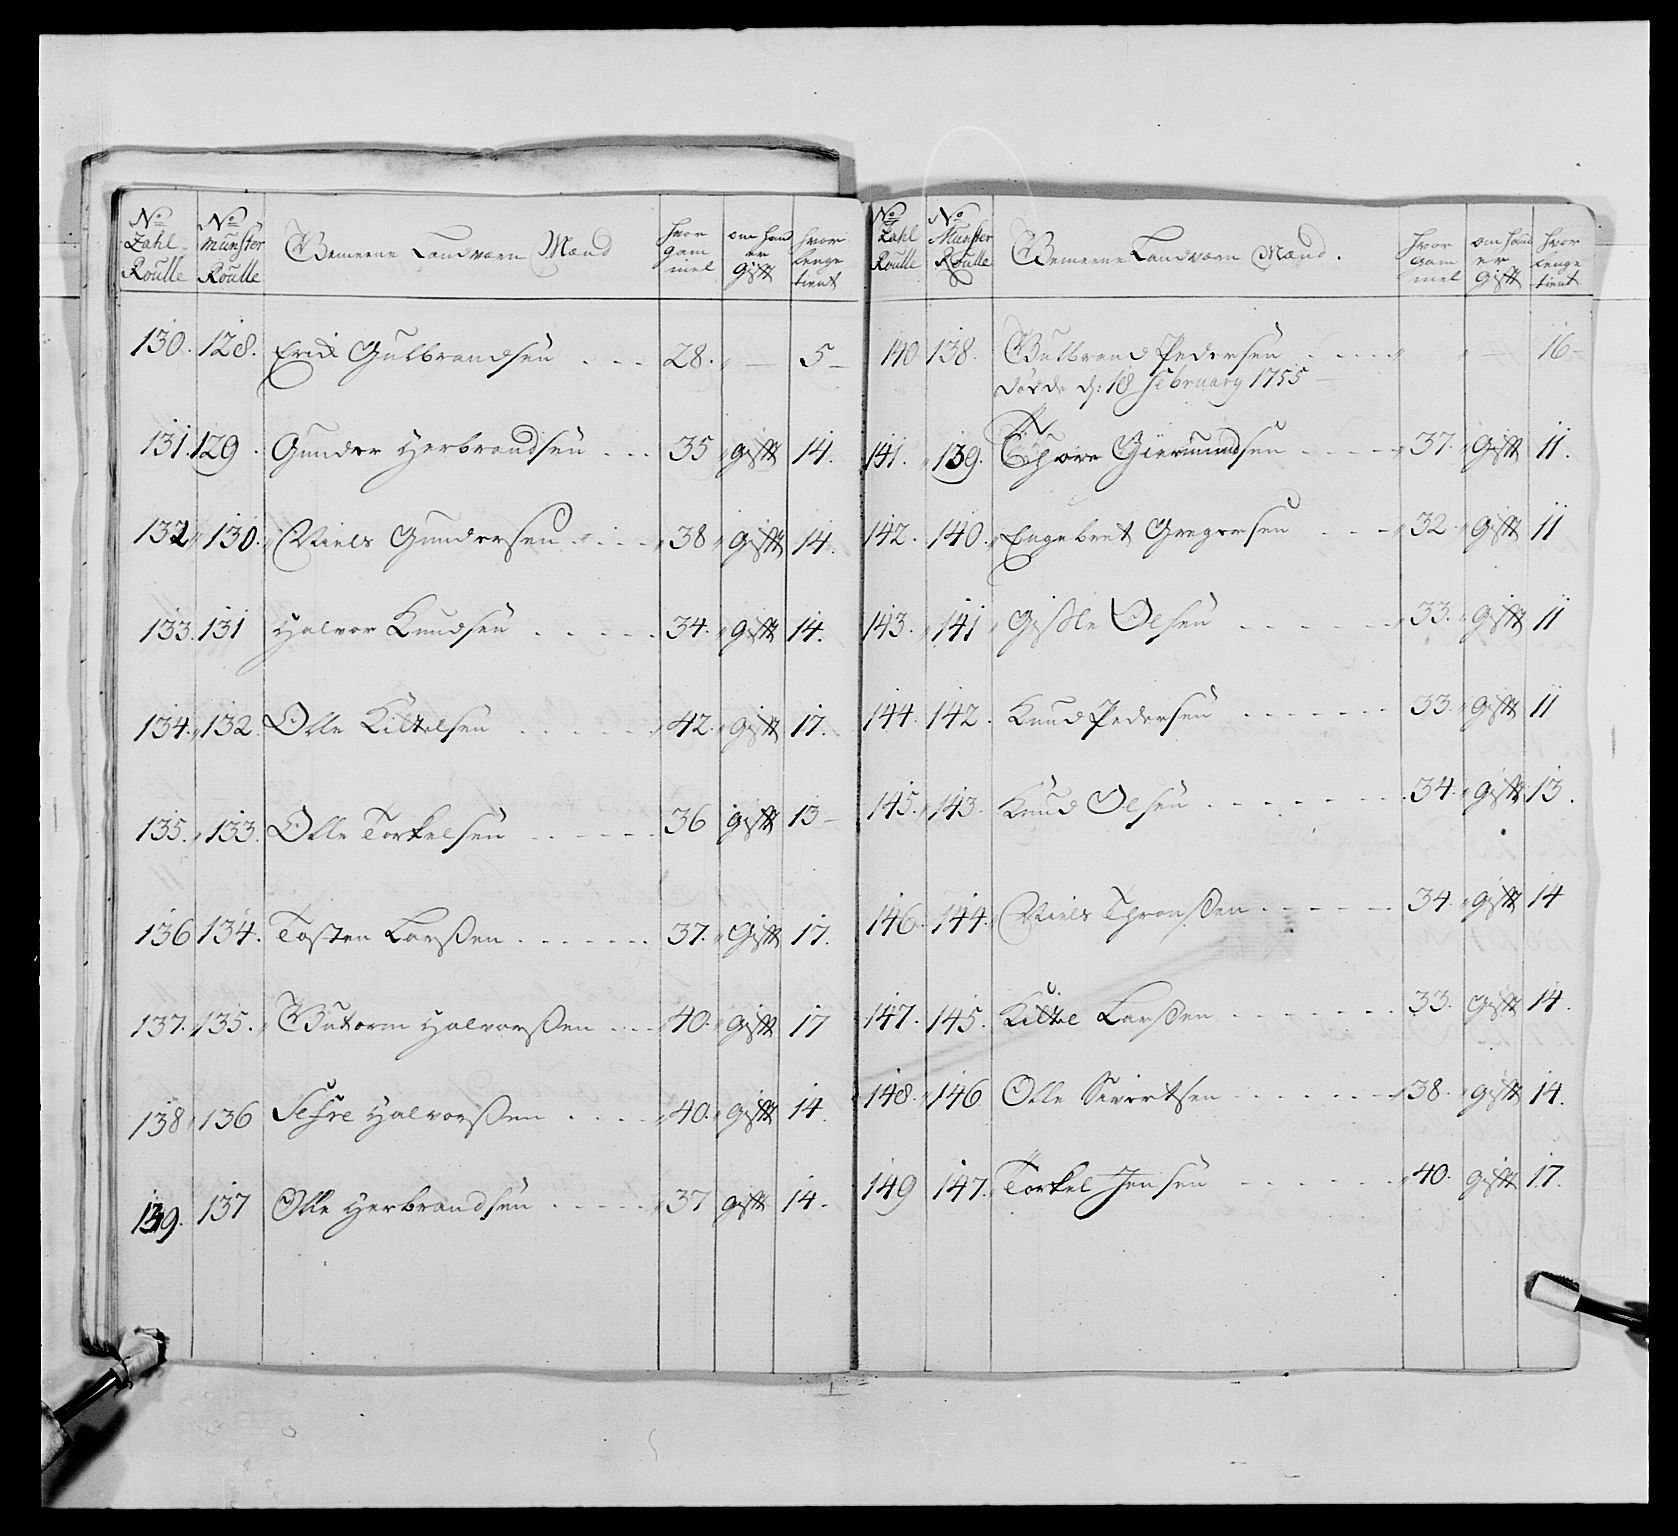 No Zahl Roulle | No Munster Roulle | Gemeene Landværn Mænd | hvor gammel | om hand er Gift | hvor lenge tient
130. 128. Erick Gulbrandsen 28. " — 5 —
131. 129. Gunder Herbrandsen 35 gift 14.
132 130. Niels Gundersen 38 gift 14.
133. 131 Halvor Knudsen 34. gift 14.
134. 132. Olle Kittelsen 42. gift 17.
135. 133. Olle Torkelsen 36 gift 13 —
136 134. Tosten Larssen 37. Gift 17.
137. 135. Gutorm Halvorssen 40. gift 17
138 136 Sefre Halvorssen 40. gift 14
139. 137 Olle Herbrandsen 37 gift 14.
No Zahl Roulle | No Munster Roulle | Gemeene Landværn Mænd. | hvor gammel | om hand er Gift | hvor lenge tient
140 138. Gulbrand Pedersen " " — 16 —
døede d: 18 February 1755 —
141. 139. Thore Giermundsen 37. Gift 11.
142. 140. Engebret Gregersen 32 Gift 11
143. 141 Gisle Olsen 33. gift 11
144. 142. Knud Pedersen 33. gift 11
145. 143. Knud Olsen 34. gift 13.
146. 144. Niels Thronssen 34. gift 14
147. 145. Kittel Larssen 33. gift 14.
148. 146 Olle Sivertsen 38. gift 14.
149 147. Torkel Jensen 40. gift 17.